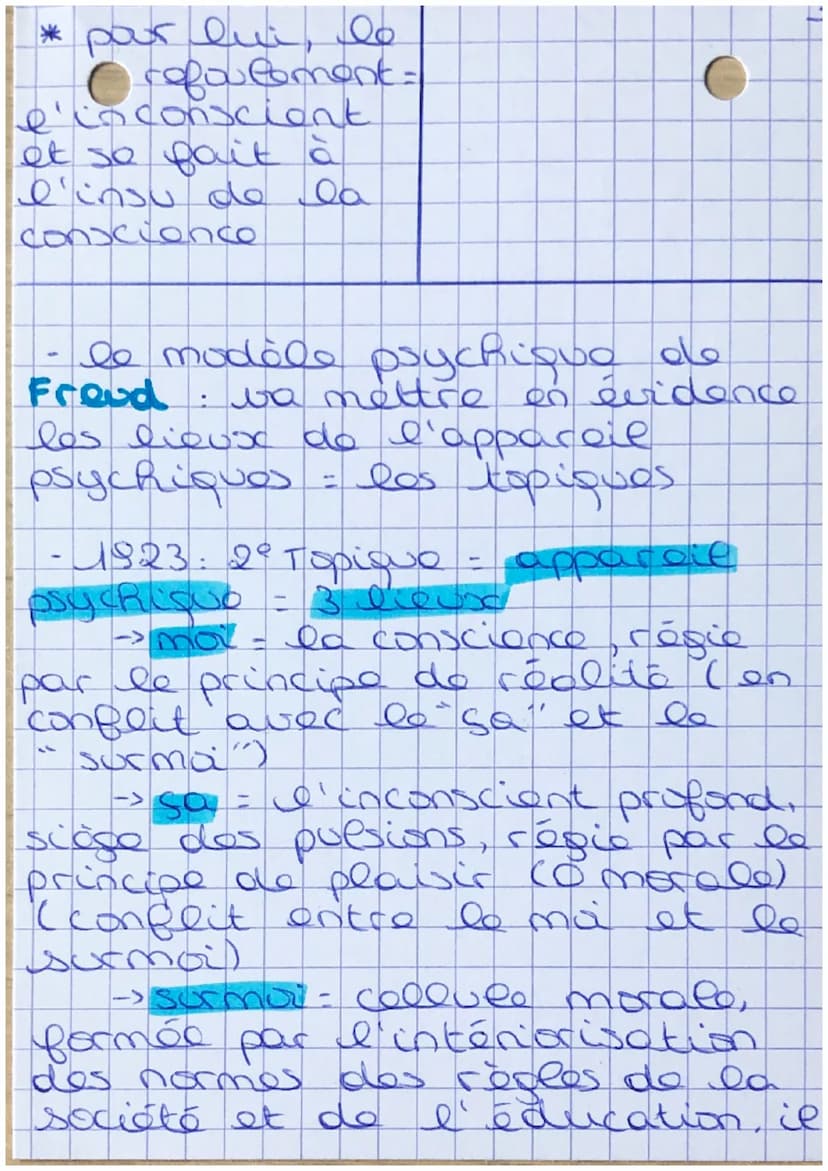 * par lui, le
refoulement =
l'inconscient
et se fait à
l'insu de la
conscience
- le modèle psychique de
Freud : va mettre en évidence
les lieux de l'appareil
psychiques = les topiques
- 1923 : 2e Topique = appareil
psychique = 3 lieux
-> moi = la conscience, régie
par le principe de réalité (en
conflit avec le "sa" et la
"surmoi")
-> sa = l'inconscient profond,
siège des pulsions, régie par le
principe de plaisir (0 morale)
(conflit entre le moi et le
surmoi)
-> surmoi = cellule morale,
formée par l'intériorisation
des normes des règles de la
société et de l'éducation, il